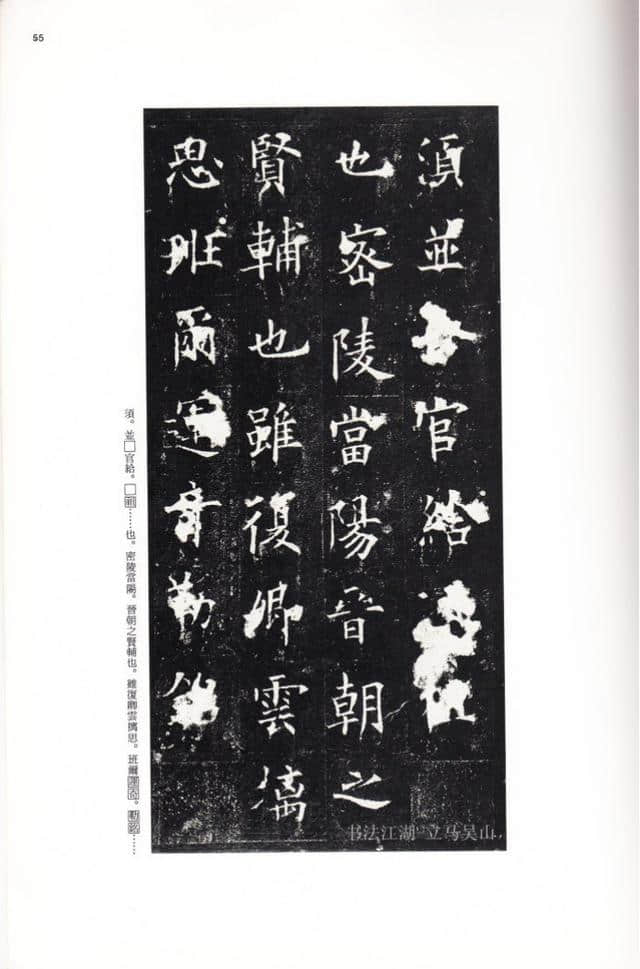 55
須並
官給
也密陵當陽晉朝之
賢輔也雖復卿雲摛
思班爾運奇勒銘
須。並□官給。□……也。密陵當陽。晉朝之賢輔也。雖復卿雲摛思。班爾運奇。勒銘……
书法江湖 立马吴山